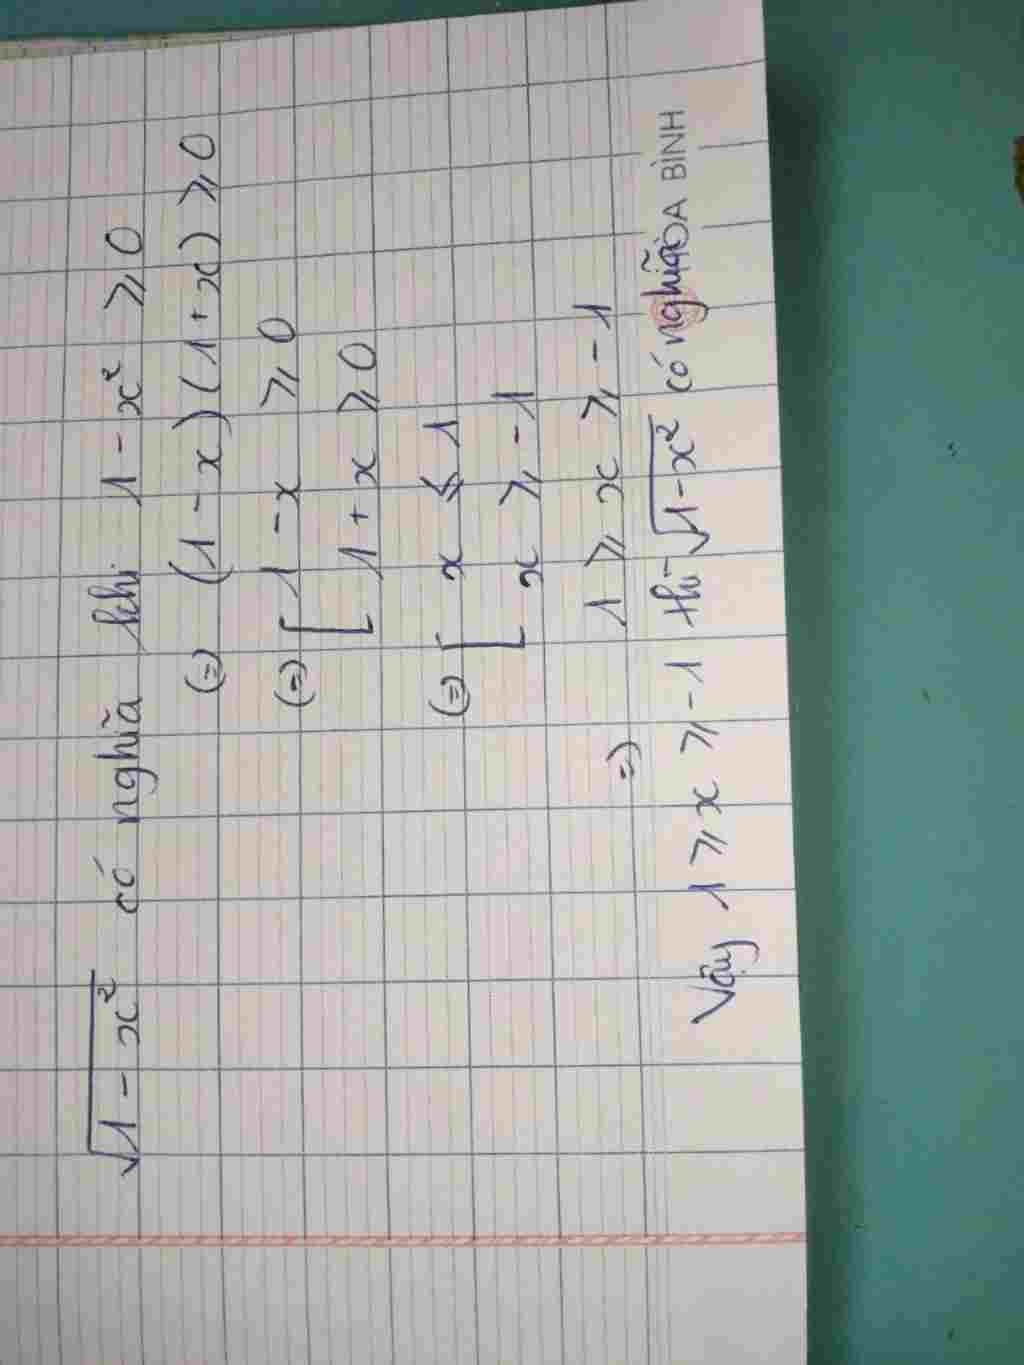 √1 - x² có nghĩa khi 1 - x² ⩾ 0
(=) (1 - x)(1 + x) ⩾ 0
(=) [ 1 - x ⩾ 0
1 + x ⩾ 0
(=) [ x ⩽ 1
x ⩾ -1
=) 1 ⩾ x ⩾ -1
Vậy 1 ⩾ x ⩾ -1 thì √1-x² có nghĩa
BÌNH